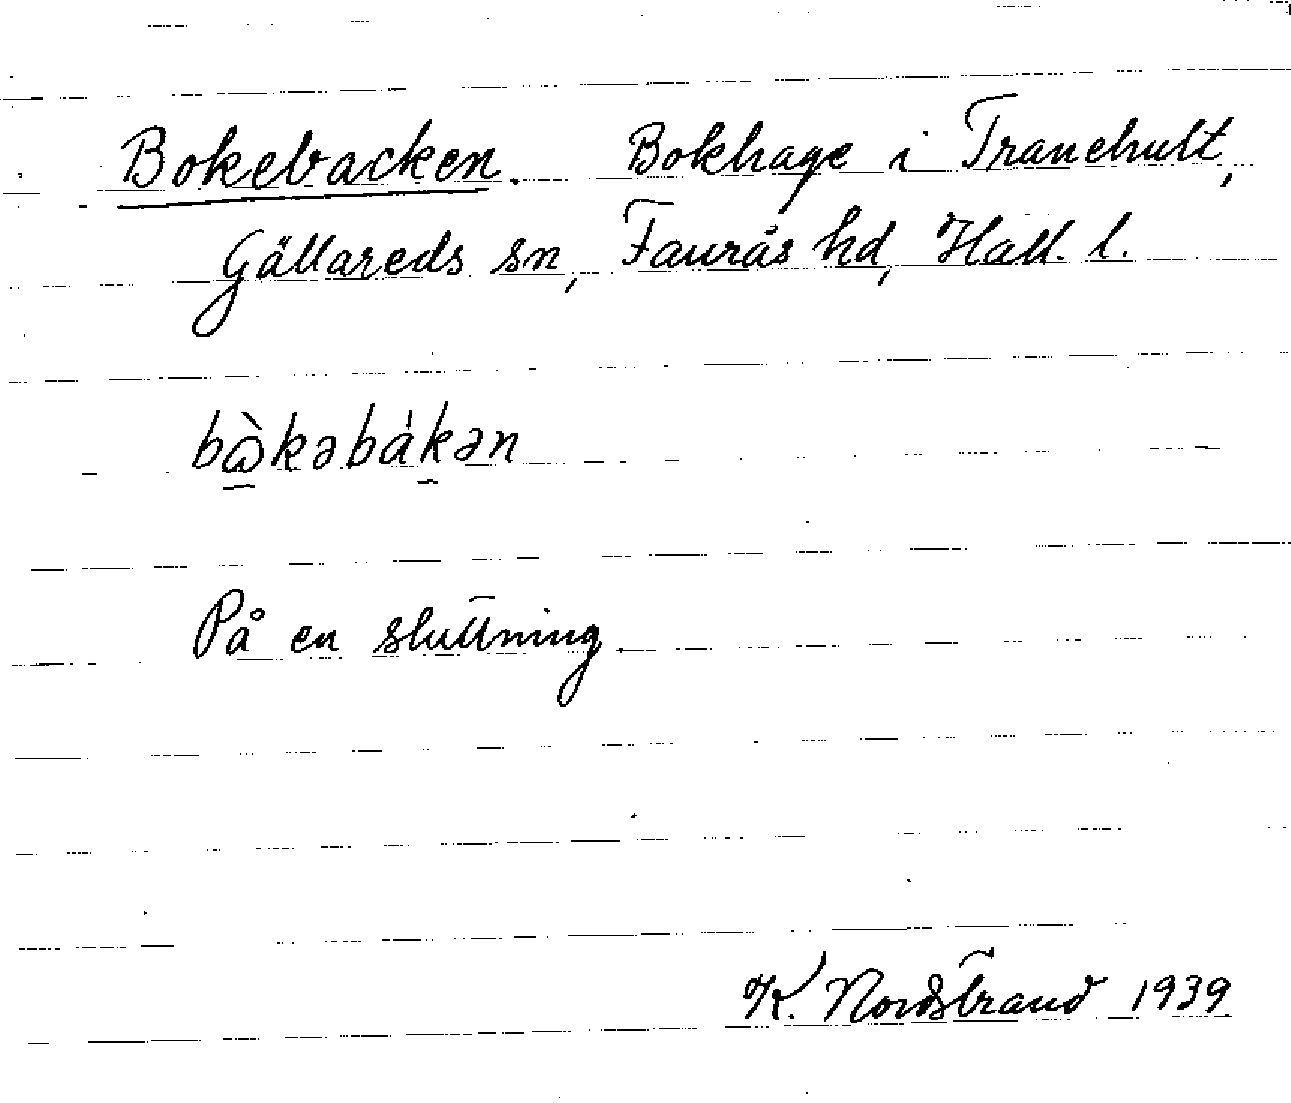 Bokebacken. Bokhage i Tranehult,
Gällareds sn, Faurås hd, Hall. l.
bὼkəbàkən
På en sluttning.
K. Nordstrand 1939